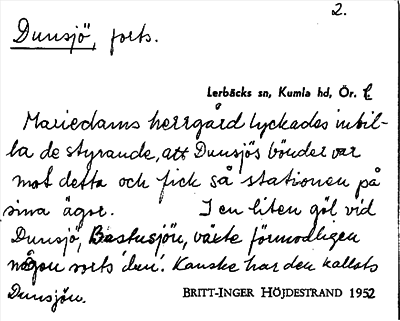 2.
Dunsjö, forts.
Lerbäcks sn, Kumla hd, Ör. l
Mariedams herrgård lyckades inbil-
la de styrande, att Dunsjös bönder var
mot detta och fick så stationen på
sina ägor. I en liten göl vid
Dunsjö, Bastusjön, växte förmodligen
någon sorts 'dun'. Kanske har den kallats
Dunsjön. BRITT-INGER HÖJDESTRAND 1952